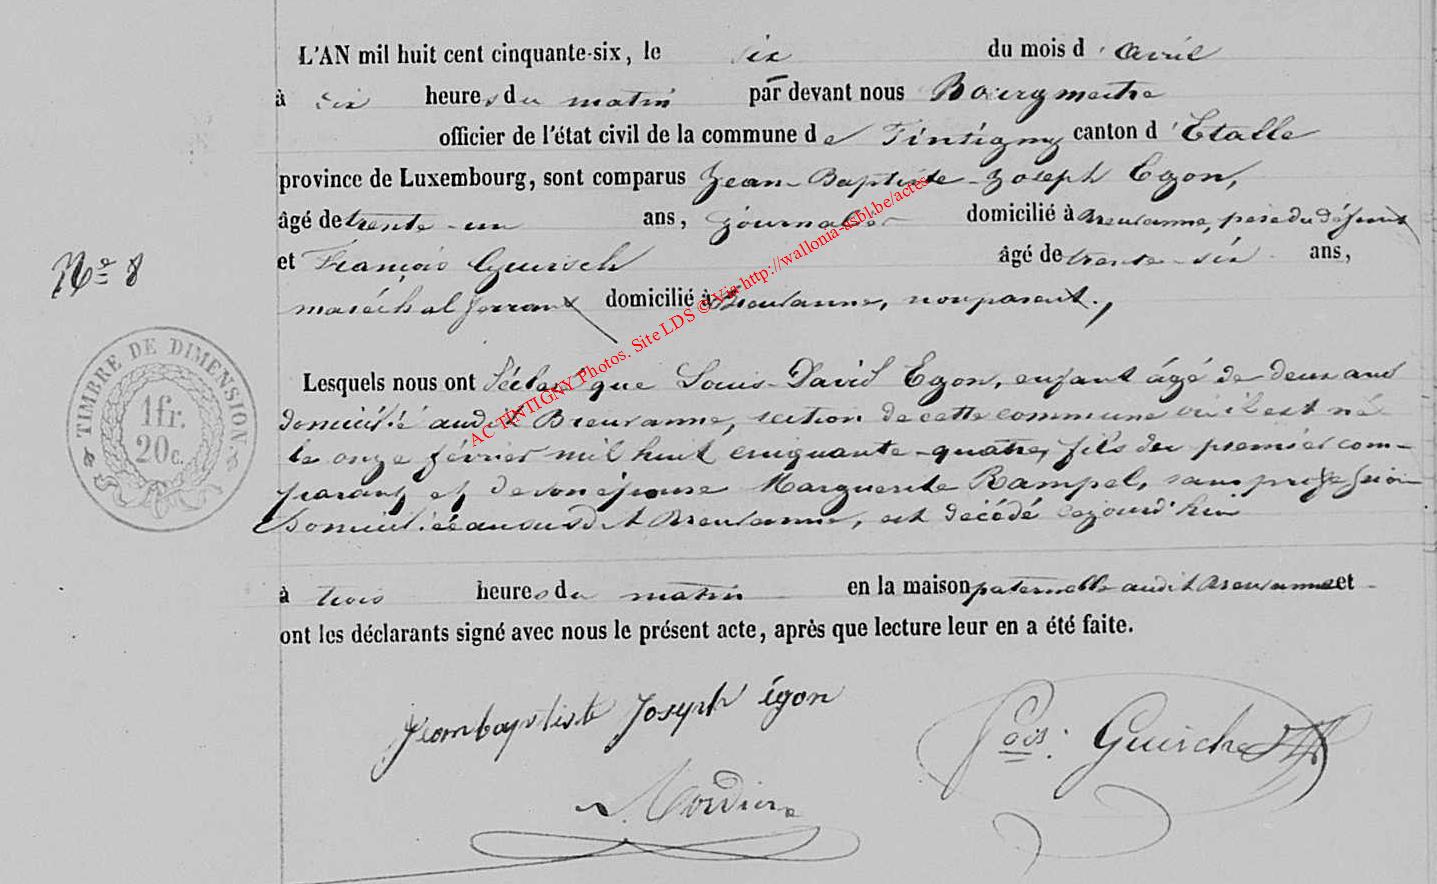 L'AN mil huit cent cinquante-six, le six du mois d'avril
à six heures du matin par devant nous Bourgmestre
officier de l'état civil de la commune de Tintigny canton d'Etalle
province de Luxembourg, sont comparus Jean-Baptiste-Joseph Egon,
âgé de trente-un ans, journalier domicilié à Breuvanne, père du défunt
et François Guirsch âgé de trente-six ans,
N° 8
maréchal ferrant domicilié à Breuvanne, non parent,
TIMBRE DE DIMENSION
1 fr.
20 c.
Lesquels nous ont déclaré que Louis-David Egon, enfant âgé de deux ans
domicilié audit Breuvanne, section de cette commune où il est né
le onze février mil huit cinquante-quatre, fils du premier com-
parant, et de son épouse Marguerite Rampel, sans profession
domiciliée au susdit Breuvanne, est décédé aujourd'hui
à trois heures du matin en la maison paternelle audit Breuvanne et
ont les déclarants signé avec nous le présent acte, après que lecture leur en a été faite.
Jeanbaptiste Joseph égon
Fois: Guirsch
AC TINTIGNY Photos. Site LDS © Via http://wallonia-asbl.be/actes